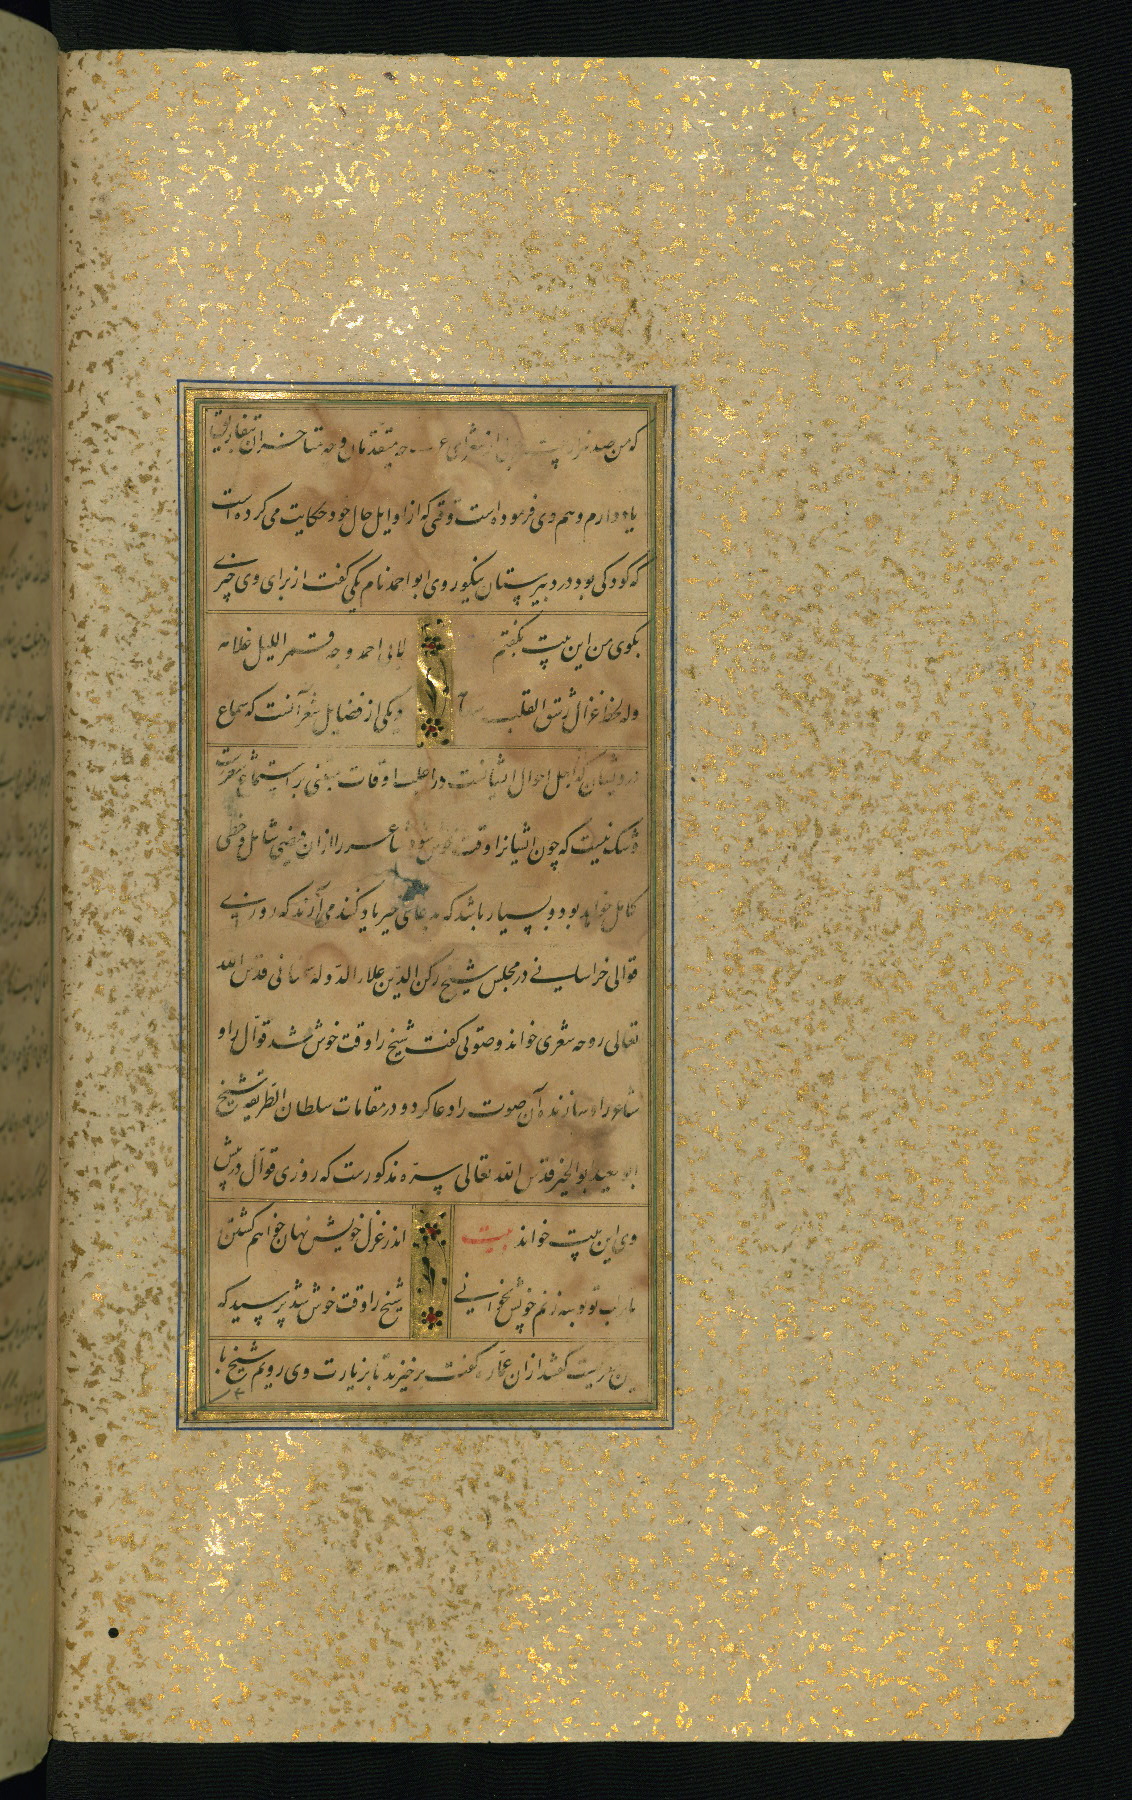 که من صد هزار بیت از شعرای عرب چه متقدمان و چه متاخران بتفاریق
یاد دارم و هم وی فرموده است وقتی که از اوایل حال خود حکایت می کرده است
که کودکی بود در دبیرستان نیکوروی ابو احمد نام یکی گفت از برای وی چیزی
بکوی من این بیت بگفتم لابی احمد وجه قمر اللیل غلامه
وله لحظ غزال رشق القلب و یکی از فضایل شعر آنست که سماع
درویشان که اجل احوال ایشانست در اغلب اوقات مبنی بر استماع شعرست
و شک نیست که چون ایشانرا وقت خوش شود شاعر را از ان فیضی شامل و حظی
کامل خواهد بود و بسیار باشد که بدعای خیر یاد کنند می آرند که روزی
قوالی خراسانی در مجلس شیخ رکن الدین علاء الدوله سمنانی قدس الله
تعالی روحه شعری خواند و صوتی گفت شیخ را وقت خوش شد قوال را و
شاعر را و سازنده آن صوت را دعا کرد و در مقامات سلطان الطریقه شیخ
ابو سعید ابوالخیر قدس الله تعالی سره مذکورست که روزی قوال در پیش
وی این بیت خواند بیت اندر غزل خویش نهان خواهم گشتن
تا بر لب تو بوسه زنم چونش بخوانی شیخ را وقت خوش شد پرسید که
این بیت گفتند از ان عماره گفت برخیزید تا بزیارت وی رویم شیخ با